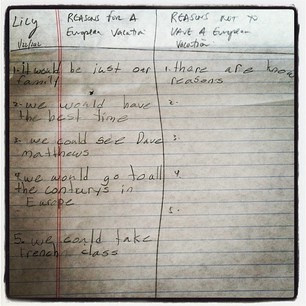 Lily
REASONS FOR A
European Vacation
REASONS NOT TO
HAVE A European
Vacation
1. it would be just our
family
2. we would have
the best time
3. we could see Dave
matthews
4. we would go to all
the conturys in
Europe
5. we could take
french class
1. there are know
reasons
2.
3.
4.
5.